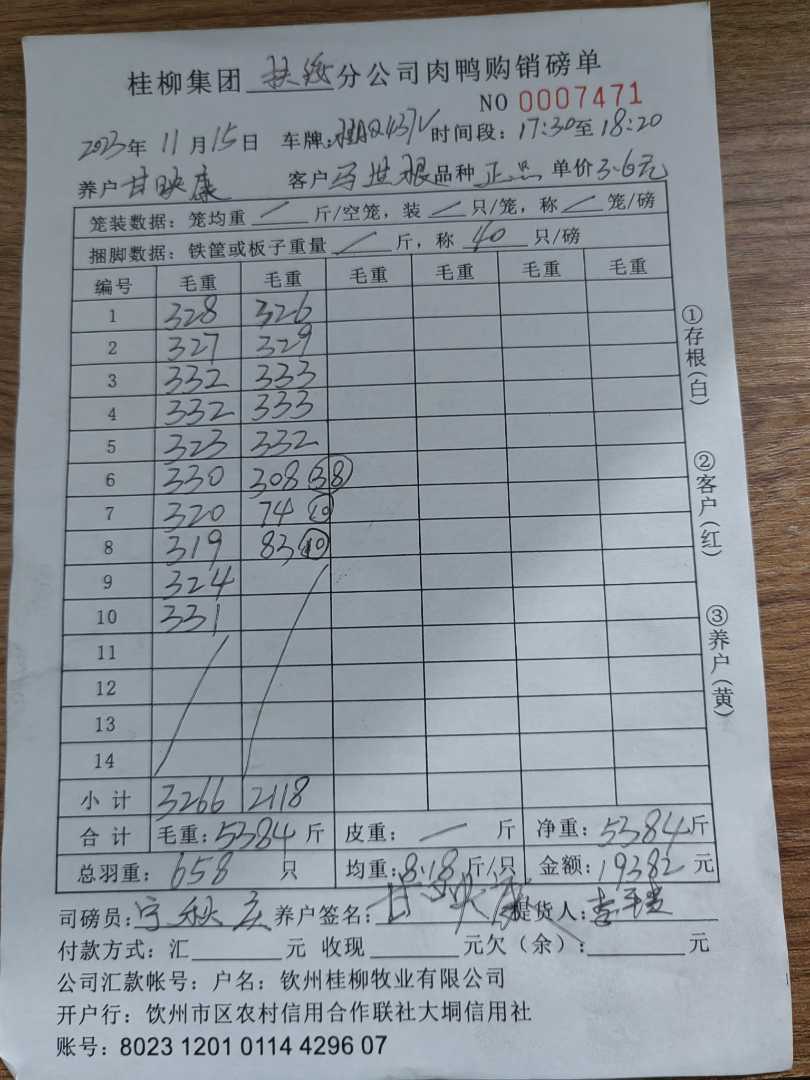 桂柳集团 扶绥 分公司肉鸭购销磅单
NO 0007471
2023年 11月15日 车牌: 时间段: 17:30至18:20
养户 甘映康 客户 马世根 品种 正品 单价 3.6元
笼装数据: 笼均重 / 斤/空笼, 装 / 只/笼, 称 / 笼/磅
捆脚数据: 铁筐或板子重量 / 斤, 称 40 只/磅
编号 毛重 毛重 毛重 毛重 毛重 毛重
1 328 326
2 327 329
3 332 333
4 332 333
5 323 332
6 330 308 38
7 320 74 10
8 319 83 10
9 324
10 331
11
12
13
14
小计 3266 2118
合计 毛重: 5384 斤 皮重: / 斤 净重: 5384斤
总羽重: 658 只 均重: 8.18 斤/只 金额: 19382 元
①存根(白)
②客户(红)
③养户(黄)
司磅员: 宁秋庆 养户签名: 甘映康 提货人:
付款方式: 汇 元 收现 元欠(余): 元
公司汇款帐号: 户名: 钦州桂柳牧业有限公司
开户行: 钦州市区农村信用合作联社大垌信用社
账号: 8023 1201 0114 4296 07